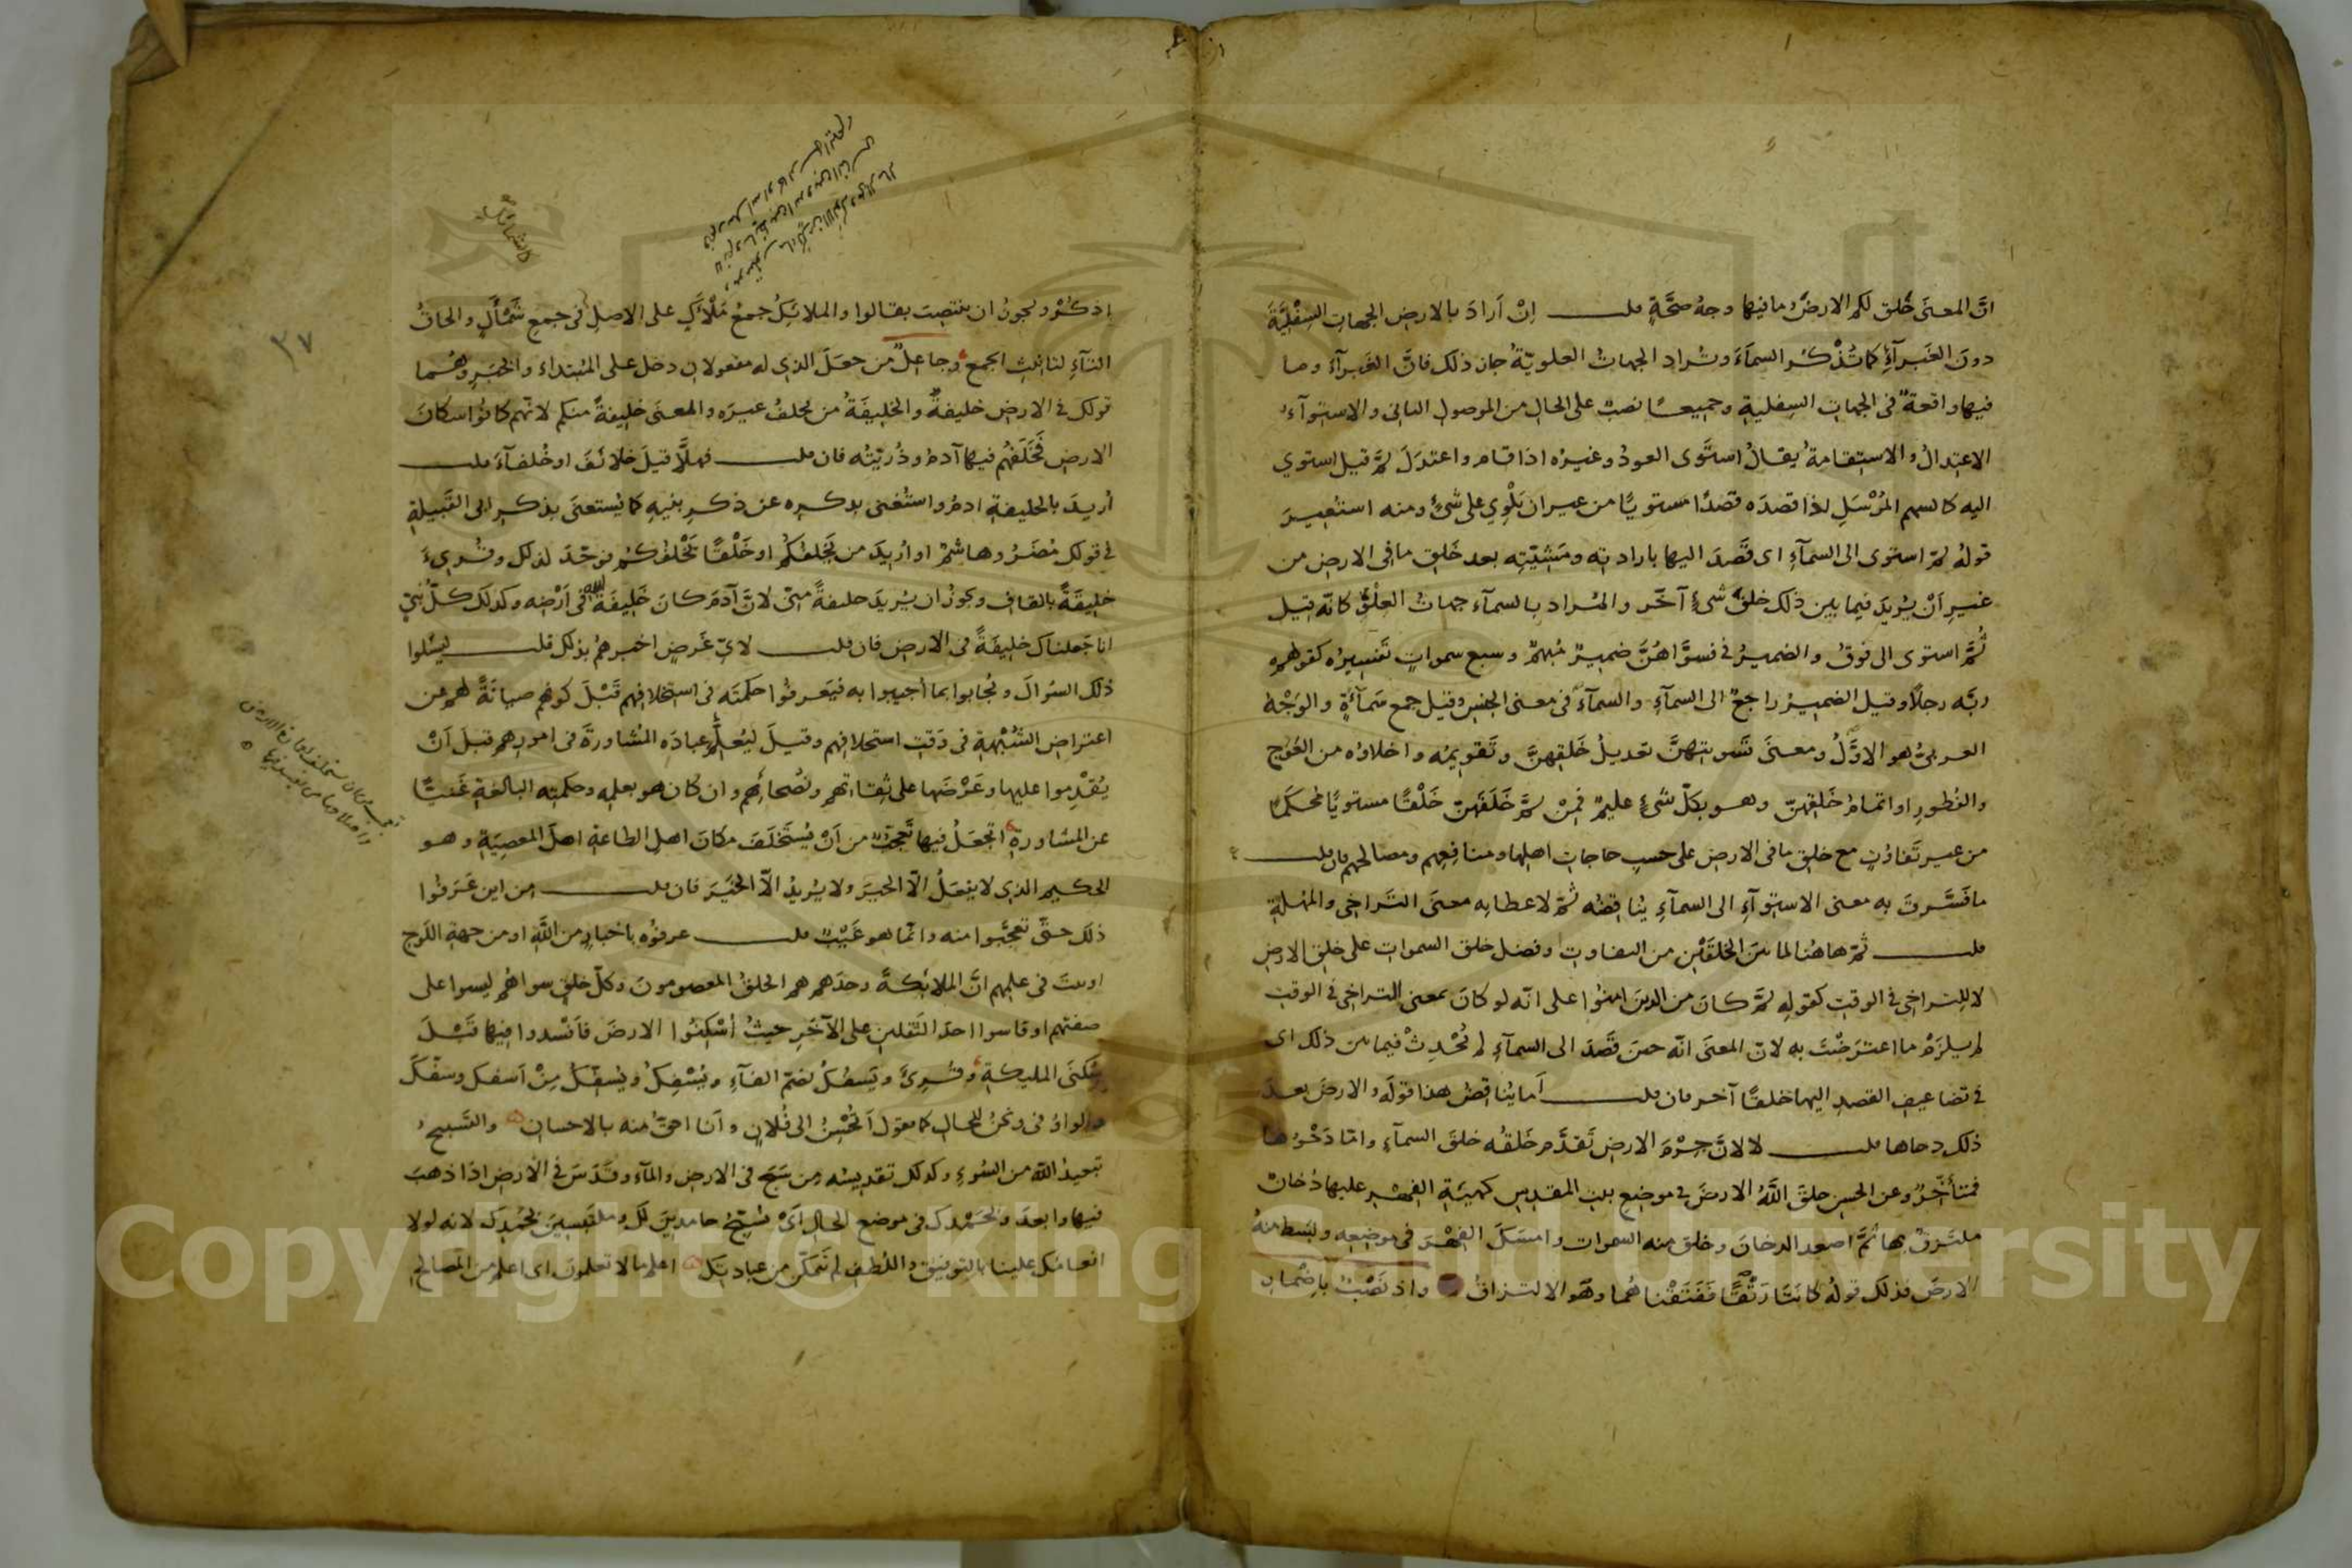 انَّ المعنى خَلق لكم الارضَ وما فيها وجهُ صحَّةٍ قلت إنْ اَرادَ بالارضِ الجهاتِ السِفْليَّةَ
دونَ الغَبرآءِ كما تُذْكَرُ السمآءُ وتُراد الجهاتُ العلويّةُ جاز ذلك فانَّ الغَبرآءَ وما
فيها واقعةٌ فى الجهاتِ السِفليةِ وجميعًا نصبٌ على الحالِ من الموصولِ الثانى والاستوآءُ
الاعتدالُ والاستقامةُ يقالُ استَوَى العودُ وغيرُه اذا قام واعتدَلَ ثمَّ قيل استوي
اليه كالسهم المُرْسَلِ اذا قصدَه قصدًا مستويًا من غير ان يَلْوِي على شئٍ ومنه استُعِيرَ
قولهُ ثمّ استوى الى السمآءِ اى قَصَدَ اليها بارادته ومَشِيّتِه بعد خَلقِ ما فى الارضِ من
غيرِ اَنْ يُريدَ فيما بين ذلك خلقَ شئٍ آخَر والمُراد بالسمآءِ جهاتُ العلْوِ كانّه قيل
ثُمَّ استوى الى فوقُ والضميرُ فى فسوَّاهُنَّ ضميرٌ مُبهمٌ وسبع سمواتٍ تَفسيرُه كقولهم
ربَّه رجلًا وقيل الضميرُ راجعٌ الى السمآءِ والسمآءُ فى معنى الجنسِ وقيل جمع سَمآءَةٍ والوَجْهُ
العربىُّ هو الاوَّلُ ومعنى تَسويتهنَّ تعديلُ خَلقِهنَّ وتَقويمُه واخلاؤه من العِوَج
والفُطورِ او اتمامُ خَلقِهنّ وهو بكلّ شئٍ عليمٌ فمِنْ ثَمَّ خَلَقَهنّ خَلْقًا مستويًا مُحكَمًا
من غير تَفاوُتٍ مع خلقِ ما فى الارضِ على حسبِ حاجاتِ اهلِها ومنافعِهم ومصالحهم فان قلت
ما فَسَّرتَ به معنى الاستوآءِ الى السمآءِ يُناقِضُه ثمّ لاعطائِه معنَى التَراخِى والمُهلةِ
قلت ثمّ هاهُنا لما بينَ الخلقَيْنِ من التفاوتِ وفضلِ خلق السمواتِ على خلقِ الارضِ
لا للتراخِى فى الوقتِ كقولِه ثمَّ كانَ من الذينَ امنُوا على انّه لو كانَ بمعنى التراخِى فى الوقتِ
لم يلزَمْ ما اعتَرَضْتَ به لانّ المعنَى انّه حينَ قَصَدَ الى السمآءِ لم يُحْدِثْ فيما بين ذلك اى
فى تضاعيفِ القصدِ اليها خلقًا آخر فان قلت اَما يُناقِضُ هذا قولَه والارضَ بعدَ
ذلك دحاها قلت لا لانَّ جِرْمَ الارضِ تَقدَّم خَلقُه خلقَ السمآءِ وامّا دَحْوُها
فمتأخّرٌ وعن الحسنِ خلقَ اللّٰهُ الارضَ فى موضعِ بيتِ المقدِسِ كهيئةِ الفِهْرِ عليها دُخانٌ
ملتَزِقٌ بها ثمَّ اصعد الدخانَ وخلق منه السموات وامسَكَ الفِهْرَ فى موضعِه وبَسَط منهُ
الارضَ فذلك قولُه كانَتَا رَتْقًا فَفَتَقْناهُما وهو الالتزاقُ واذ نَصْبٌ باِضْمارِ
إذكُرْ ويجوزُ ان ينتصِبَ بقالوا والملائِكُ جمعُ مَلْأَكٍ على الاصلِ فى جمعِ شَمْأَلٍ والحاقُ
التآءِ لتانيثِ الجمعِ وجاعِلٌ من جعَلَ الذى له مفعولانِ دخل على المُبتداء والخبَرِ وهُما
قولك فى الارضِ خليفةً والخليفَةُ من يخلفُ غيرَه والمعنَى خليفةً منكم لانّهم كانُوا سكانَ
الارضِ فخَلَفَهُم فيها آدمُ وذُرّيّتُه فان قلت فهلَّا قيلَ خلائفَ او خُلفآءَ قلت
اُريدَ بالخليفةِ ادمُ واستُغنى بذكرِه عن ذكرِ بنيهِ كما يُستغنَى بذكرِ ابى القَبيلةِ
فى قولك مُضَرُ وهاشمٌ او اُريدَ من يَخلفُكُم او خَلْقًا يَخْلفُكُم فوحّدَ لذلك وقُرِىءَ
خليقةً بالقافِ ويجوزُ ان يُريدَ خليفةً مِنّى لانَّ آدمَ كانَ خَليفةَ اللّٰه فى اَرْضِه وكذلكَ كلُّ نبىٍّ
انا جَعلناكَ خليفَةً فى الارضِ فان قلت لاىّ غَرضٍ اخبرهمُ بذلك قلت ليسْلوا
ذلكَ السؤالَ ويُجابوا بما اُجيبوا به فيَعرفُوا حكمتَه فى استخلافِهم قَبْلَ كونِهم صيانَةً لهم عن
اعتراضِ الشُبْهةِ فى وَقتِ استخلافِهم وقيلَ ليُعلِّمَ عبادَه المُشاورةَ فى امورِهم قبلَ اَنْ
يُقْدِموا عليها وعَرْضَها على ثِقاتِهم ونُصحائِهم وان كان هو بعلمِه وحكمتِه البالغةِ غَنيًّا
عن المشاورةِ اتجعَلُ فيها تَعجّبٌ من اَنْ يُستَخلَفَ مكانَ اهلِ الطاعةِ اهلُ المعصيَةِ وهو
الحكيم الذى لا يفعَلُ الّا الخيرَ ولا يُريدُ الّا الخَيرَ فان قلت من اين عَرَفُوا
ذلكَ حتّى تعجَّبوا منه وانّما هو غَيْبٌ قلت عرفُوه باخبارٍ من اللّٰهِ او من جهةِ اللَوحِ
او ثبتَ فى علمِهم انَّ الملائكةَ وحدَهم هم الخلقُ المعصومونَ وكلّ خلقٍ سواهُم ليسوا على
صفتهم او قاسوا احدَ الثَقلينِ على الآخَرِ حيثُ اُسْكِنُوا الارضَ فاَفْسدوا فيها قَبْلَ
سُكنَى المليكةِ وقُرِئَ ويَسفُكُ بضمّ الفآءِ ويُسْفِكُ ويُسفِّكُ مِنْ اَسفك وسَفّك
والواوُ فى ونَحنُ للحالِ كما تقول اَتُحْسِنُ الى فُلانٍ واَنا احقُّ منه بالاحسان والتَسبيحُ
تبعيدُ اللّٰه من السُوءِ وكذلك تقديسُه مِن سَبَحَ فى الارضِ والمآءِ وقَدَسَ فى الارضِ اذا ذهبَ
فيها وابعدَ وبحَمْدِك فى موضع الحالِ اَىْ نُسَبّحُ حامدينَ لكَ وملتَبِسينَ بحَمْدِك لانه لولا
انعامُك علينا بالتوفيقِ واللُطفِ لم نَتمكَّن من عبادتِكَ اعلم ما لا تعلمونَ اى اعلم من المَصالحِ
٣٧